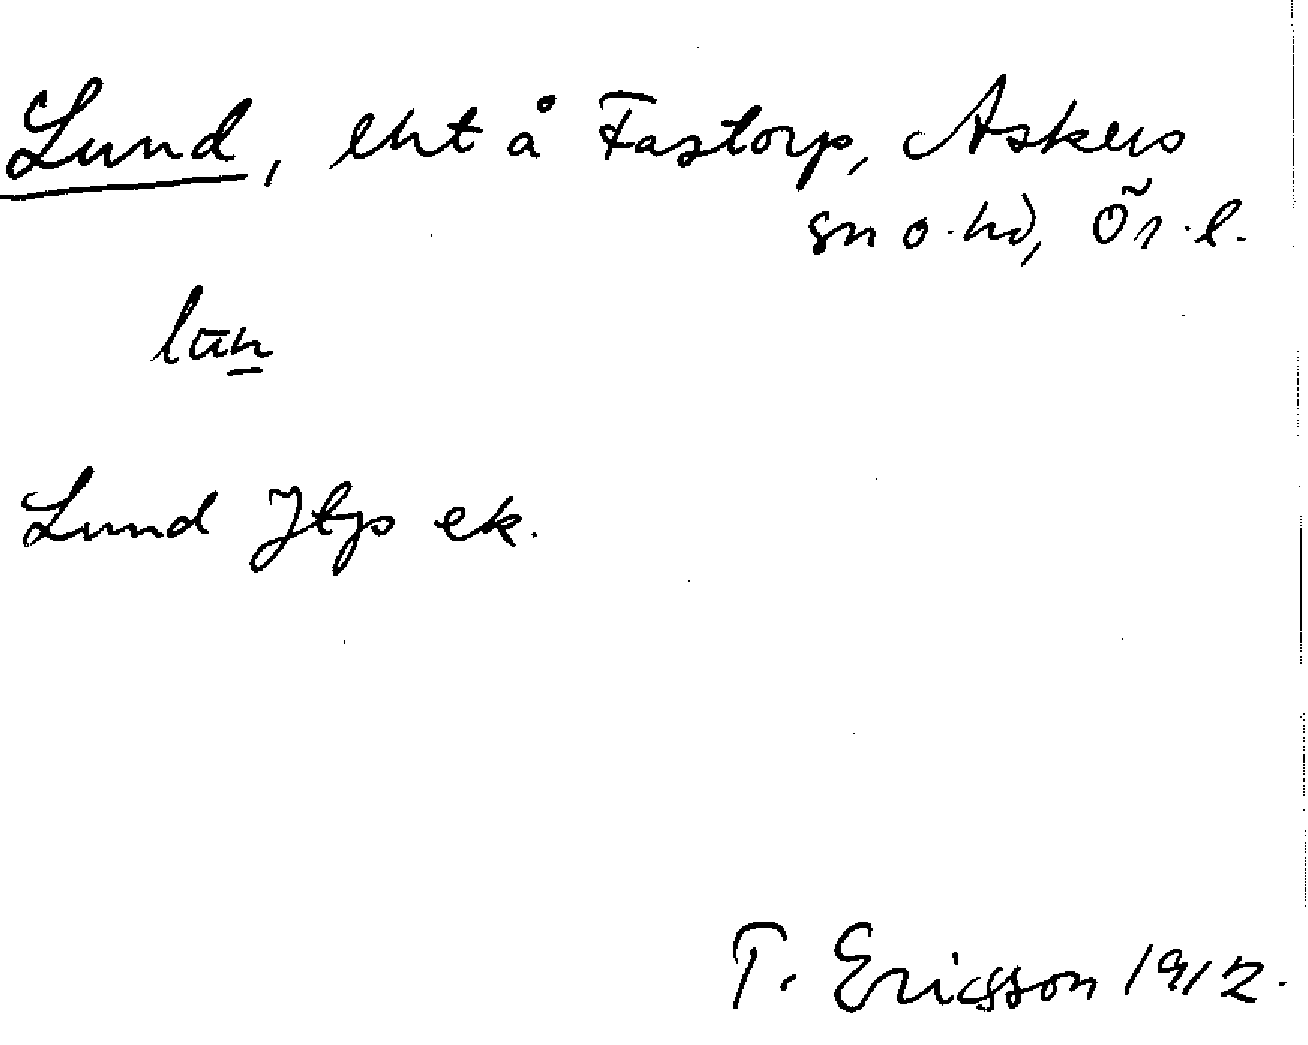 Lund, lht å Fastorp, Askers
sn o. hd, Ör. l.
lūn
Lund Jtp ek.
T. Ericsson 1912.